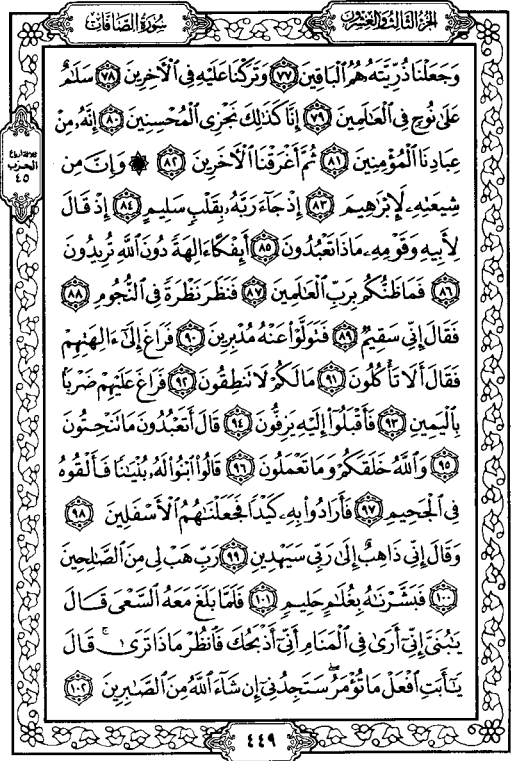 الجزء الثالث والعشرون
سورة الصافات
وَجَعَلْنَا ذُرِّيَّتَهُ هُمُ الْبَاقِينَ ٧٧ وَتَرَكْنَا عَلَيْهِ فِي الْآخِرِينَ ٧٨ سَلَامٌ
عَلَى نُوحٍ فِي الْعَالَمِينَ ٧٩ إِنَّا كَذَٰلِكَ نَجْزِي الْمُحْسِنِينَ ٨٠ إِنَّهُ مِنْ
عِبَادِنَا الْمُؤْمِنِينَ ٨١ ثُمَّ أَغْرَقْنَا الْآخَرِينَ ٨٢ ۞ وَإِنَّ مِن
شِيعَتِهِ لَإِبْرَاهِيمَ ٨٣ إِذْ جَاءَ رَبَّهُ بِقَلْبٍ سَلِيمٍ ٨٤ إِذْ قَالَ
لِأَبِيهِ وَقَوْمِهِ مَاذَا تَعْبُدُونَ ٨٥ أَئِفْكًا ءَالِهَةً دُونَ اللَّهِ تُرِيدُونَ
٨٦ فَمَا ظَنُّكُم بِرَبِّ الْعَالَمِينَ ٨٧ فَنَظَرَ نَظْرَةً فِي النُّجُومِ ٨٨
فَقَالَ إِنِّي سَقِيمٌ ٨٩ فَتَوَلَّوْا عَنْهُ مُدْبِرِينَ ٩٠ فَرَاغَ إِلَىٰ ءَالِهَتِهِمْ
فَقَالَ أَلَا تَأْكُلُونَ ٩١ مَا لَكُمْ لَا تَنطِقُونَ ٩٢ فَرَاغَ عَلَيْهِمْ ضَرْبًا
بِالْيَمِينِ ٩٣ فَأَقْبَلُوا إِلَيْهِ يَزِفُّونَ ٩٤ قَالَ أَتَعْبُدُونَ مَا تَنْحِتُونَ
٩٥ وَاللَّهُ خَلَقَكُمْ وَمَا تَعْمَلُونَ ٩٦ قَالُوا ابْنُوا لَهُ بُنْيَانًا فَأَلْقُوهُ
فِي الْجَحِيمِ ٩٧ فَأَرَادُوا بِهِ كَيْدًا فَجَعَلْنَاهُمُ الْأَسْفَلِينَ ٩٨
وَقَالَ إِنِّي ذَاهِبٌ إِلَىٰ رَبِّي سَيَهْدِينِ ٩٩ رَبِّ هَبْ لِي مِنَ الصَّالِحِينَ
١٠٠ فَبَشَّرْنَاهُ بِغُلَامٍ حَلِيمٍ ١٠١ فَلَمَّا بَلَغَ مَعَهُ السَّعْيَ قَالَ
يَا بُنَيَّ إِنِّي أَرَىٰ فِي الْمَنَامِ أَنِّي أَذْبَحُكَ فَانظُرْ مَاذَا تَرَىٰ ۚ قَالَ
يَا أَبَتِ افْعَلْ مَا تُؤْمَرُ ۖ سَتَجِدُنِي إِن شَاءَ اللَّهُ مِنَ الصَّابِرِينَ ١٠٢
ثلاثة أرباع
الحزب
٤٥
٤٤٩